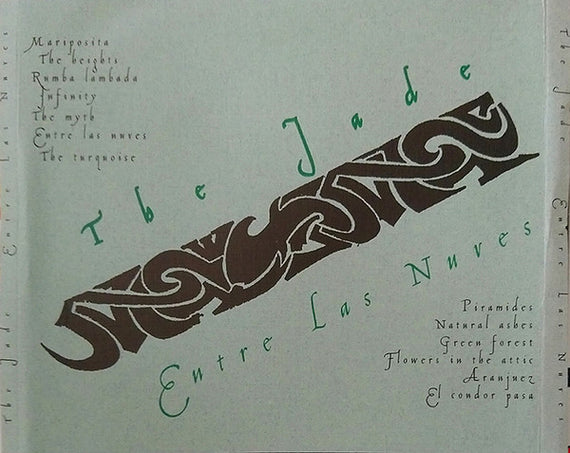 Mariposita
The heights
Rumba lambada
Infinity
The myth
Entre las nuves
The turquoise
The Jade
Entre Las Nuves
Piramides
Natural ashes
Green forest
Flowers in the attic
Aranjuez
El condor pasa
The Jade Entre Las Nuves
The Jade Entre Las Nuves